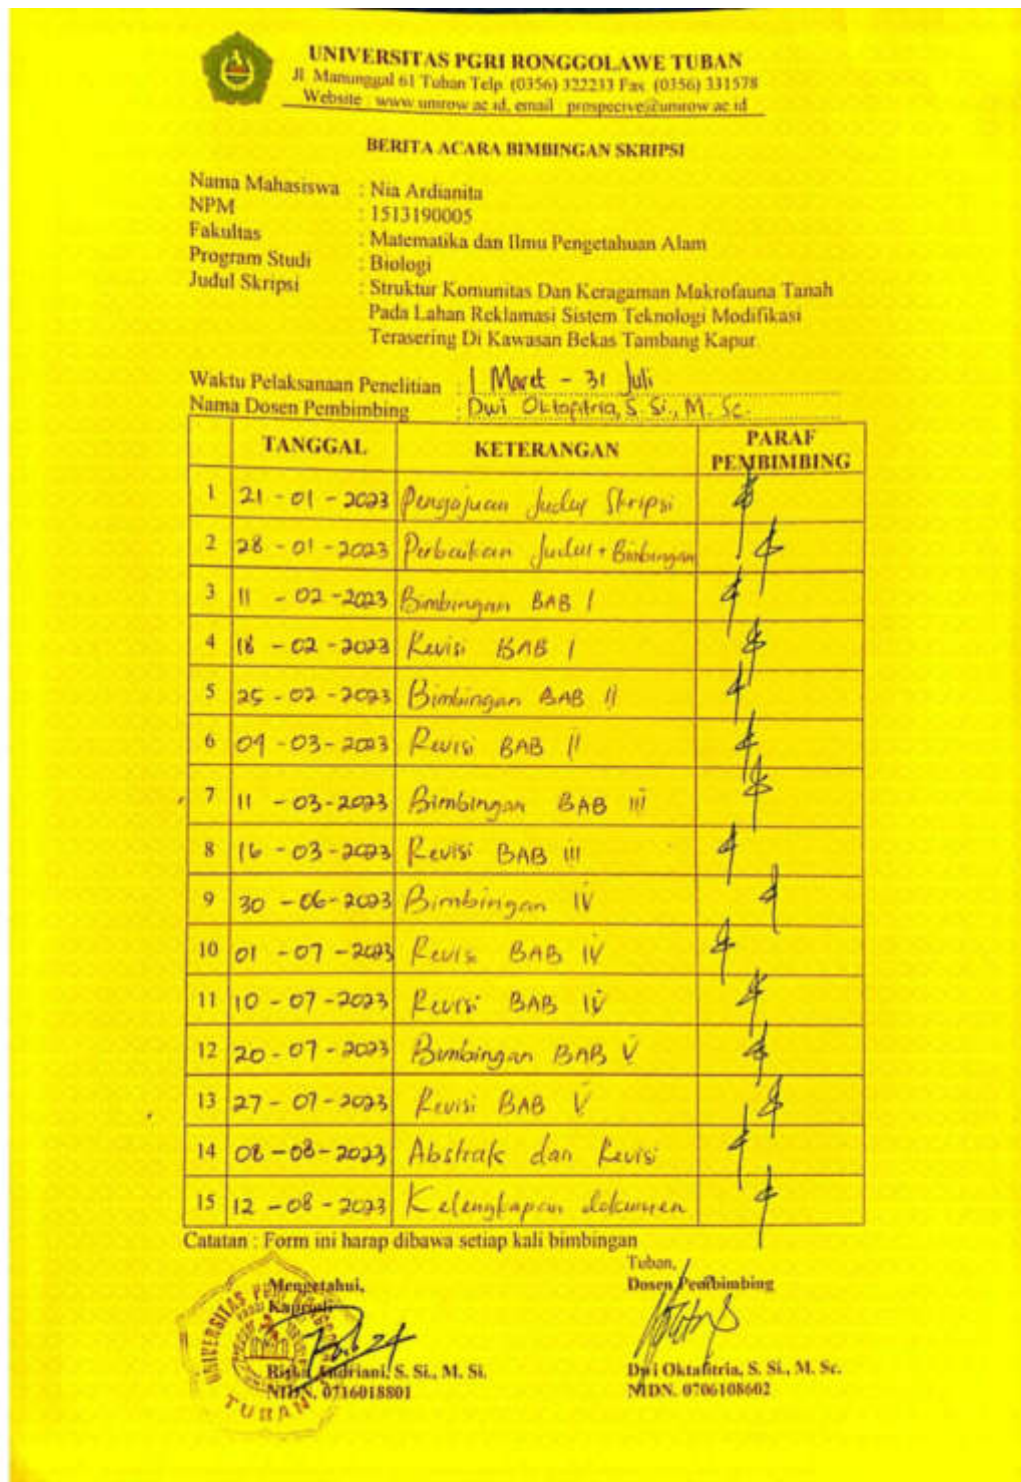 UNIVERSITAS PGRI RONGGOLAWE TUBAN
Jl. Manunggal 61 Tuban Telp. (0356) 322233 Fax. (0356) 331578
Website : www.unirow.ac.id, email : prospecive@unirow.ac.id
BERITA ACARA BIMBINGAN SKRIPSI
Nama Mahasiswa : Nia Ardianita
NPM : 1513190005
Fakultas : Matematika dan Ilmu Pengetahuan Alam
Program Studi : Biologi
Judul Skripsi : Struktur Komunitas Dan Keragaman Makrofauna Tanah
Pada Lahan Reklamasi Sistem Teknologi Modifikasi
Terasering Di Kawasan Bekas Tambang Kapur.
Waktu Pelaksanaan Penelitian : 1 Maret - 31 Juli
Nama Dosen Pembimbing : Dwi Oktafitria, S. Si., M. Sc.
TANGGAL KETERANGAN PARAF PEMBIMBING
1 21 - 01 - 2023 Pengajuan Judul Skripsi
2 28 - 01 - 2023 Perbaikan Judul + Bimbingan
3 11 - 02 - 2023 Bimbingan BAB I
4 18 - 02 - 2023 Revisi BAB I
5 25 - 02 - 2023 Bimbingan BAB II
6 09 - 03 - 2023 Revisi BAB II
7 11 - 03 - 2023 Bimbingan BAB III
8 16 - 03 - 2023 Revisi BAB III
9 30 - 06 - 2023 Bimbingan IV
10 01 - 07 - 2023 Revisi BAB IV
11 10 - 07 - 2023 Revisi BAB IV
12 20 - 07 - 2023 Bimbingan BAB V
13 27 - 07 - 2023 Revisi BAB V
14 08 - 08 - 2023 Abstrak dan Revisi
15 12 - 08 - 2023 Kelengkapan dokumen
Catatan : Form ini harap dibawa setiap kali bimbingan
Tuban,
Mengetahui, Dosen Pembimbing
Kaprodi
UNIVERSITAS PGRI
TUBAN
Riska Andriani, S. Si., M. Si. Dwi Oktafitria, S. Si., M. Sc.
NIDN. 0716018801 NIDN. 0706108602